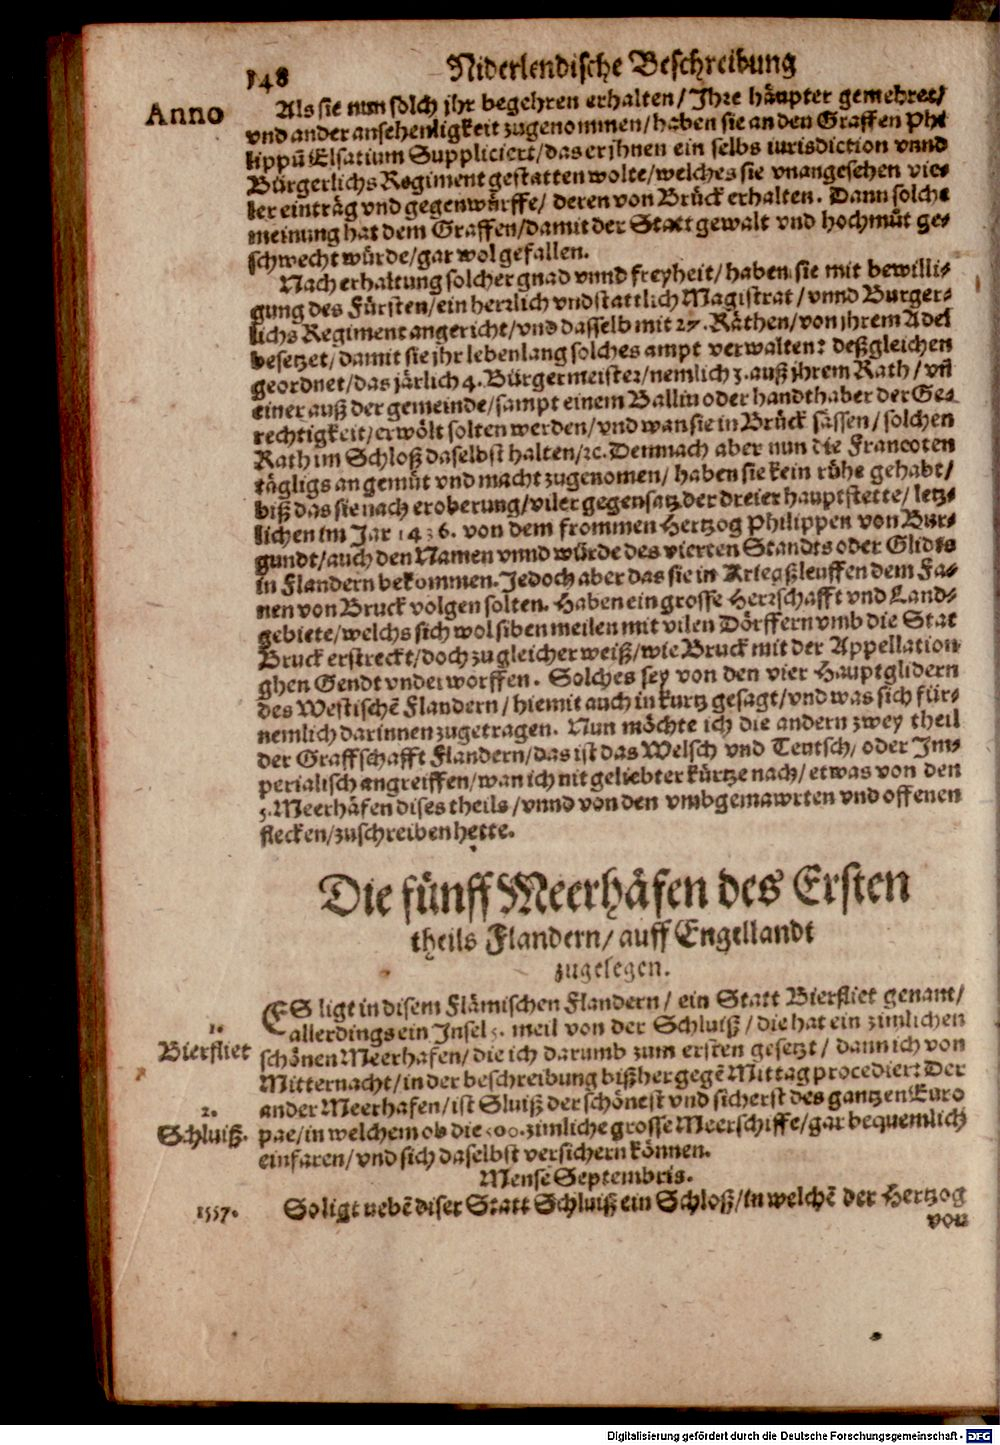 148 Niderlendische Beschreibung
Anno
Als sie nun solch jhr begehren erhalten/Jhre häupter gemehret/
vnd ander ansehenligkeit zugenommen/haben sie an den Graffen Phi
lippū Elsatium Suppliciert/das er jhnen ein selbs iurisdiction vnnd
Bürgerlichs Regiment gestatten wolte/welches sie vnangesehen vie-
ler einträg vnd gegenwürffe/ deren von Brück erhalten. Dann solche
meinung hat dem Graffen/damit der Statt gewalt vnd hochmůt ge-
schwecht würde/gar wol gefallen.
Nach erhaltung solcher gnad vnnd freyheit/haben sie mit bewilli-
gung des Fürsten/ein herrlich vnd stattlich Magistrat/vnnd Burger-
lichs Regiment angericht/vnd dasselb mit 27. Räthen/von jhrem Adel
besetzet/damit sie jhr lebenlang solches ampt verwalten: deßgleichen
geordnet/das järlich 4. Bürgermeister/nemlich 3. auß jhrem Rath/vn̄
einer auß der gemeinde/sampt einem Balliu oder handthaber der Ge-
rechtigkeit/erwölt solten werden/vnd wan sie in Brück sässen/solchen
Rath im Schloß daselbst halten/ꝛc. Demnach aber nun die Francoten
tägligs an gemůt vnd macht zugenomen/haben sie kein růhe gehabt/
biß das sie nach eroberung/viler gegensatz der dreier hauptstette/letz-
lichen im Jar 1436. von dem frommen Hertzog Philippen von Bur-
gundt/auch den Namen vnnd würde des vierten Standts oder Glidts
in Flandern bekommen. Jedoch aber das sie in Kriegßleuffen dem Fa-
nen von Bruck volgen solten. Haben ein grosse Herrschafft vnd Land-
gebiete/welchs sich wol siben meilen mit vilen Dörffern vmb die Stat
Bruck erstreckt/doch zu gleicher weiß/wie Bruck mit der Appellation
ghen Gendt vnderworffen. Solches sey von den vier Hauptglidern
des Westischē Flandern/hiemit auch in kurtz gesagt/vnd was sich für-
nemlich darinnen zugetragen. Nun möchte ich die andern zwey theil
der Graffschafft Flandern/das ist das Welsch vnd Teutsch/oder Im-
perialisch angreiffen/wan ich nit geliebter kürtze nach/etwas von den
5. Meerhäfen dises theils/vnnd von den vmbgemawrten vnd offenen
flecken/zuschreiben hette.
Die fünff Meerhäfen des Ersten
theils Flandern/auff Engellandt
zugelegen.
ES ligt in disem Flämischen Flandern/ein Statt Bierfliet genant/
allerdings ein Insel 3. meil von der Schluiß/die hat ein zimlichen
1.
Bierfliet
schönen Meerhafen/die ich darumb zum ersten gesetzt/dann ich von
Mitternacht/in der beschreibung bißher gegē Mittag procediert: Der
ander Meerhafen/ist Sluiß der schönest vnd sicherst des gantzen Euro
2.
Schluiß.
pae/in welchem ob die 500. zimliche grosse Meerschiffe/gar bequemlich
einfaren/vnd sich daselbst versichern können.
Mense Septembris.
1557.
So ligt nebē diser Statt Schluiß ein Schloß/in welchē der Hertzog
von
Digitalisierung gefördert durch die Deutsche Forschungsgemeinschaft - DFG